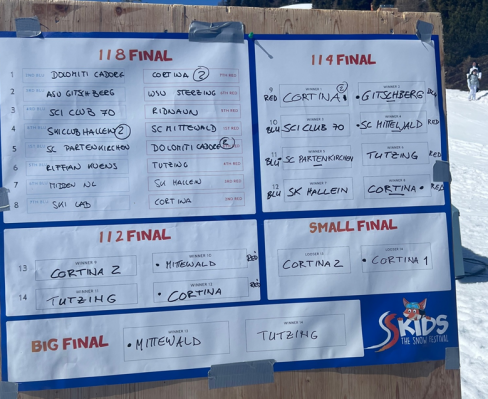 1/8 FINAL
1 DOLOMITI CADORE CORTINA 2
2 ASV GITSCHBERG WSV STERZING
3 SCI CLUB 70 RIDNAUN
4 SKICLUB HALLEIN 2 SC MITTEWALD
5 SC PARTENKIRCHEN DOLOMITI CADORE
6 RIFFIAN KUENS TUTZING
7 SK HALLEIN
8 SKI LAB CORTINA
1/4 FINAL
9 RED CORTINA 2 • GITSCHBERG
10 BLU SCI CLUB 70 • SC MITTEWALD RED
11 BLU • SC PARTENKIRCHEN TUTZING RED
12 BLU SK HALLEIN CORTINA • RED
1/2 FINAL
13 WINNER 9 CORTINA 2 • MITTEWALD RED
14 TUTZING • CORTINA RED
SMALL FINAL
CORTINA 2 • CORTINA 1
BIG FINAL
WINNER 13 • MITTEWALD WINNER 14 TUTZING
SKIDS
THE SNOW FESTIVAL